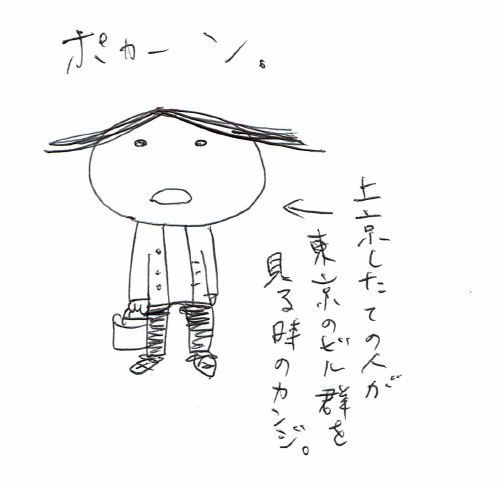 ポカーン。
上京したての人が
東京のビル群を
見る時のカンジ。